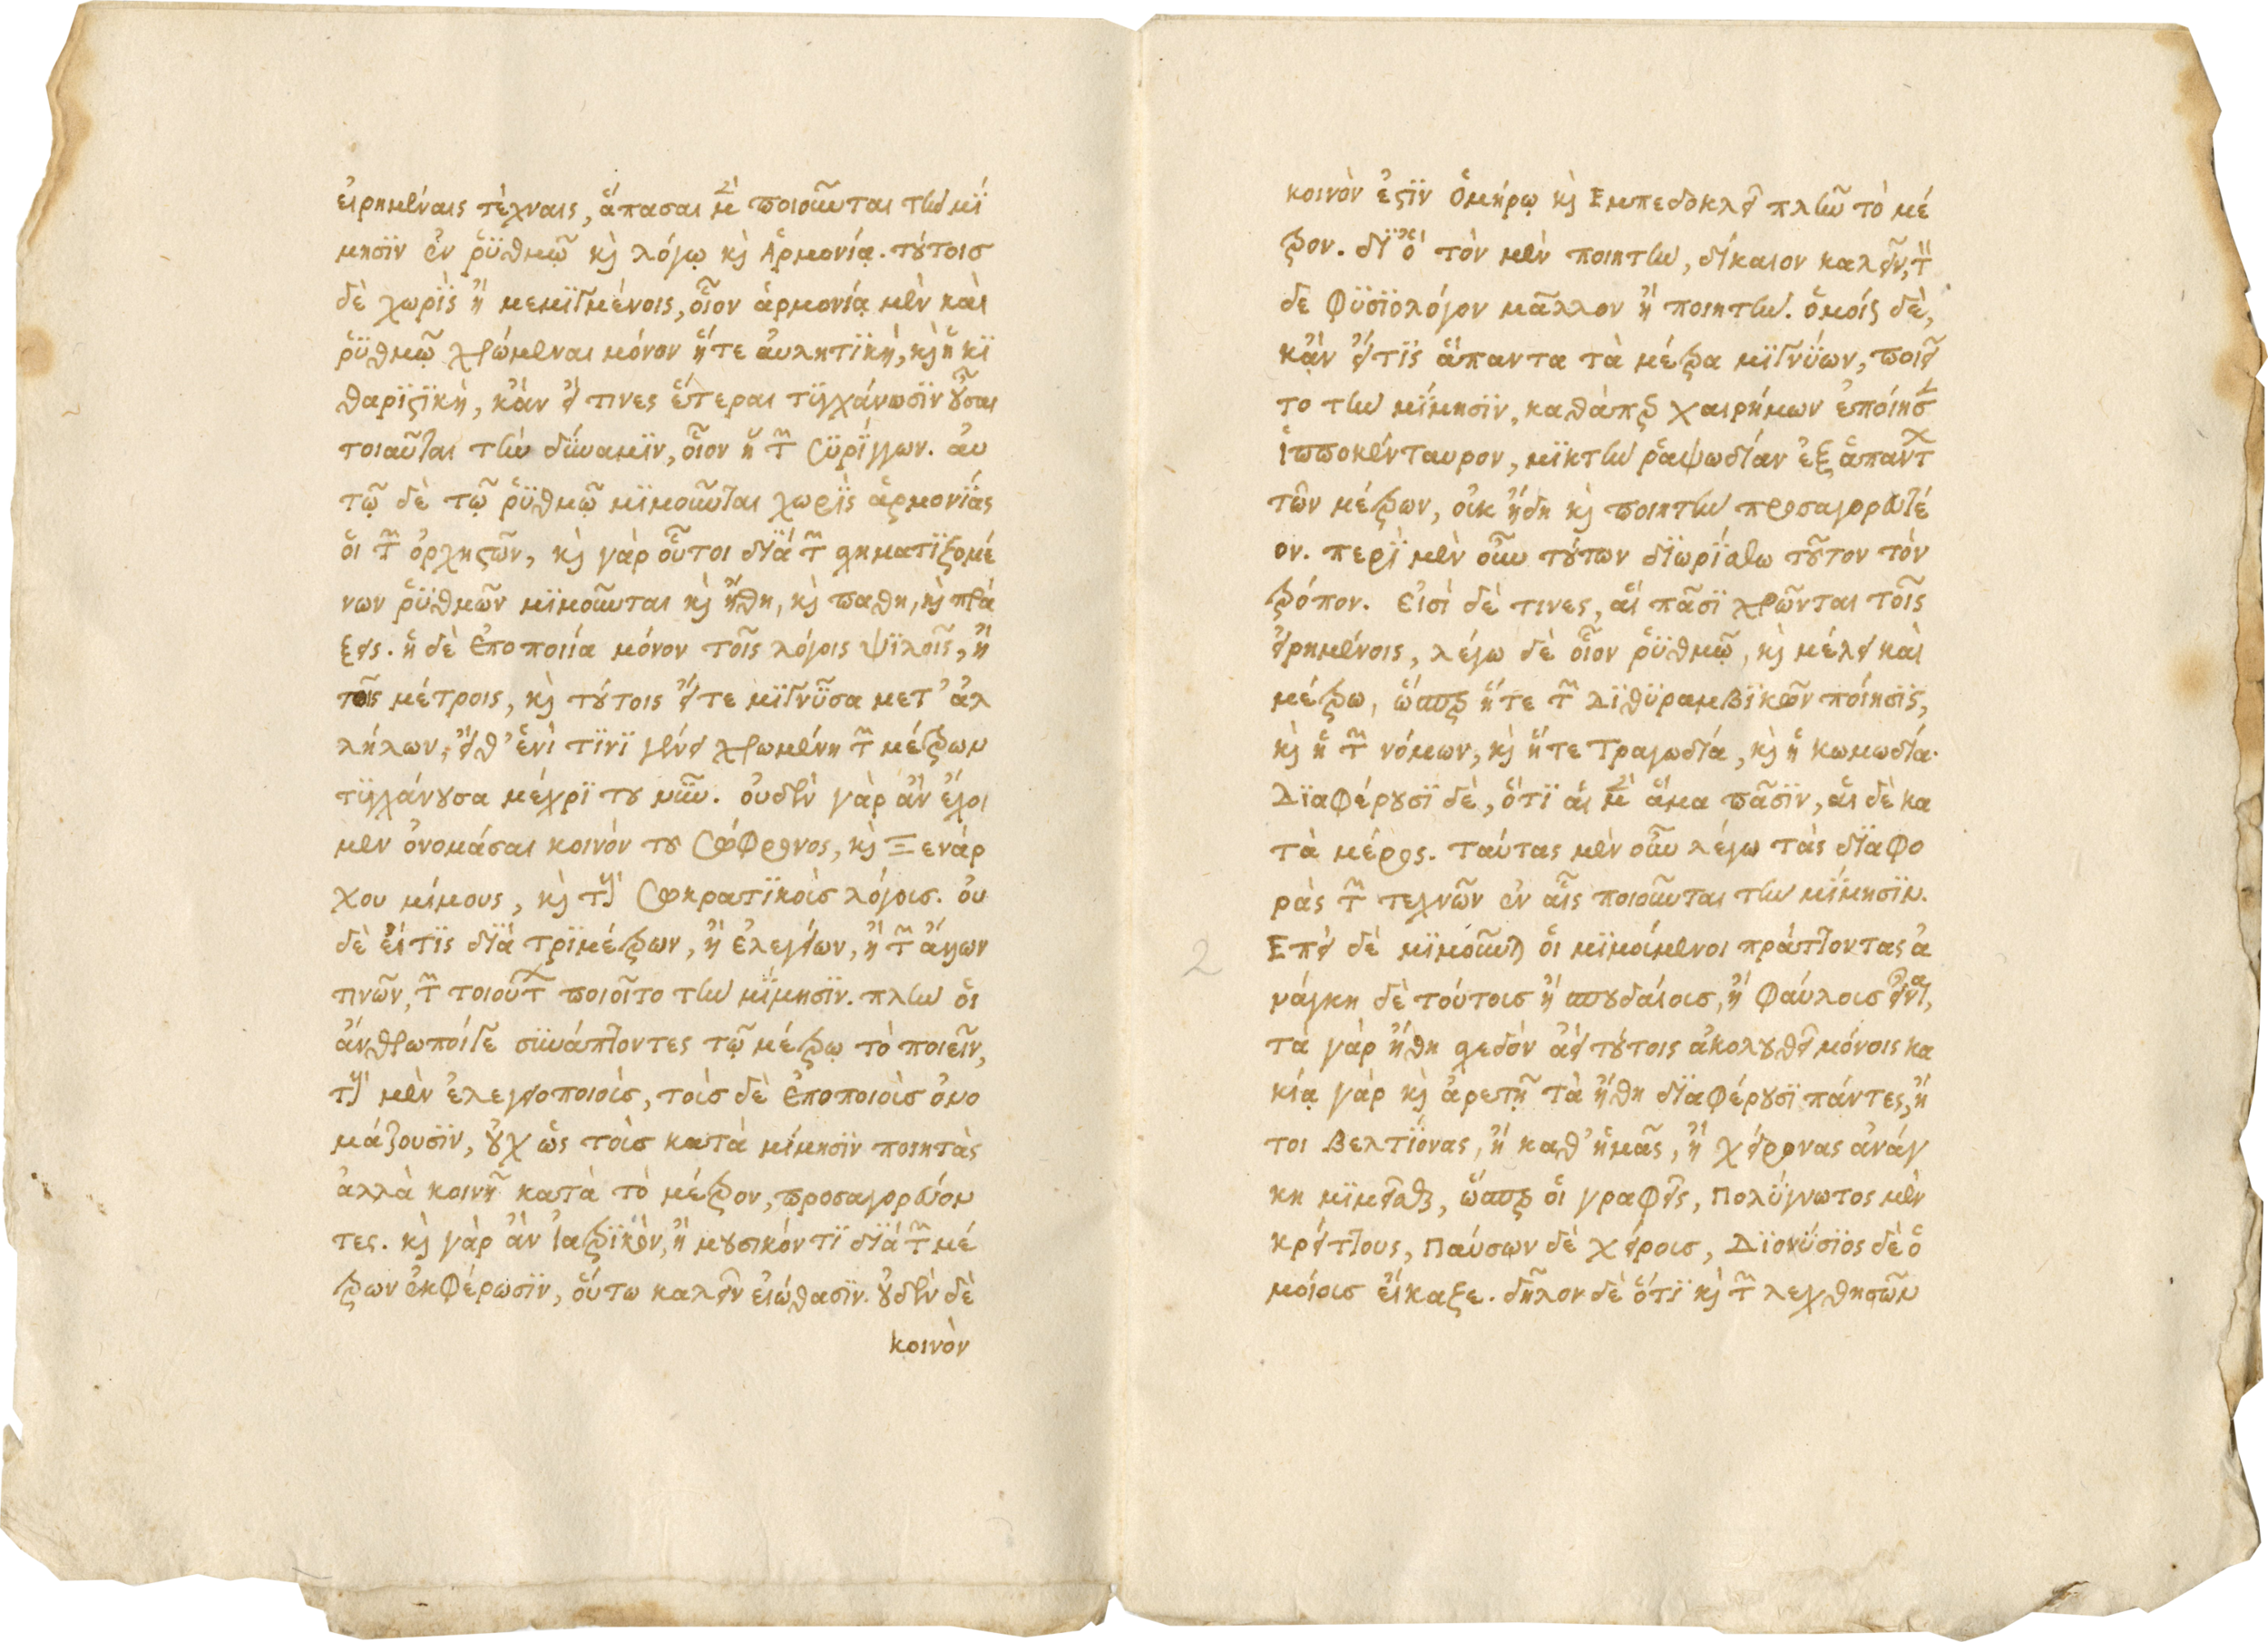 εἰρημέναις τέχναις, ἅπασαι μὲν ποιοῦνται τὴν μί
μησϊν ἐν ῥϋθμῷ κὶ λόγῳ κὶ Ἁρμονίᾳ. τούτοισ
δὲ χωρὶς ἢ μεμϊγμένοις, οἷον ἁρμονίᾳ μὲν καὶ
ῥϋθμῷ χρώμεναι μόνον ἥτε ἀυλητϊκὴ, κὶ ἡ κϊ
θαρϊςϊκὴ, κἂν εἴ τινες ἕτεραι τϋγχάνωσϊν οὖσαι
τοιαῦται τὴν δύναμϊν, οἷον ἡ τῶν Σϋρίγγων. ἀυ
τῷ δὲ τῷ ῥϋθμῷ μϊμοῦνται χωρὶς ἁρμονίας
ὁι τῶν ὀρχηςῶν, κὶ γὰρ οὗτοι διὰ τῶν σχηματϊζομέ
νων ῥϋθμῶν μϊμοῦνται κὶ ἤθη, κὶ παθη, κὶ πρά
ξεις. ἡ δὲ ἐποποιία μόνον τοῖς λόγοις ψϊλοῖς, ἢ
τοῖς μέτροις, κὶ τούτοις εἴτε μϊγνῦσα μετ' ἀλ
λήλων, εἴθ' ἑνὶ τϊνϊ γένει χρωμένη τῶν μέτρων
τϋγχάνουσα μέχρϊ του νῦν. ὀυδὲν γὰρ ἂν ἔχοι
μεν ὀνομάσαι κοινὸν του Σώφρονος, κὶ Ξενάρ
χου μίμους, κὶ τοὺς Σωκρατϊκοὶς λόγοις. ὀυ
δὲ εἴτϊς διὰ τρϊμέτρων, ἢ ἐλεγείων, ἢ τῶν ἄλλων
τινῶν, τῶν τοιούτων ποιοῖτο τὴν μίμησϊν. πλὴν ὁι
ἄνθρωποίγε σϋνάπτοντες τῷ μέτρῳ τὸ ποιεῖν,
τοὺς μὲν ἐλεγειοποιοὶς, τοὶσ δὲ ἐποποιοὶσ ὀνο
μάζουσϊν, οὐχ ὡς τοὶσ κατὰ μίμησϊν ποιητὰς
ἀλλὰ κοινῇ κατὰ τὸ μέτρον, προσαγορεύον
τες. κὶ γὰρ ἂν ἰατρϊκὸν, ἢ μουσικόν τϊ διὰ τῶν μέ
τρων ἐκφέρωσϊν, ὅυτω καλεῖν εἰώθασϊν. οὐδὲν δὲ
κοινὸν
κοινὸν ἐςϊν Ὁμήρῳ κὶ Εμπεδοκλεῖ πλὴν τὸ μέ
τρον. διὸ τὸν μὲν ποιητὴν, δίκαιον καλεῖν, τὸν
δε Φϋσϊολόγον μᾶλλον ἢ ποιητὴν. ὁμοίως δὲ,
κἂν εἴτϊς ἅπαντα τὰ μέτρα μϊγνϋων, ποιεῖ
το τὴν μίμησϊν, καθάπερ χαιρήμων ἐποίησε
ἱπποκένταυρον, μϊκτὴν ῥαψωδίαν ἐξ ἁπάντων
τῶν μέτρων, οἰκ ἤδη κὶ ποιητὴν προσαγορευτέ
ον. περὶ μὲν οὖν τούτων διωρίσθω τοῦτον τὸν
τρόπον. Εἰσὶ δὲ τινες, αἳ πᾶσϊ χρῶνται τοῖς
εἰρημένοις, λέγω δὲ οἷον ῥϋθμῷ, κὶ μέλει καὶ
μέτρω, ὥσπερ ἥτε τῶν Δϊθϋραμβϊκῶν ποίησϊς,
κὶ ἡ τῶν νόμων, κὶ ἥτε Τραγωδία, κὶ ἡ κωμωδία.
Δϊαφέρουσϊ δὲ, ὅτϊ ἁι μὲν ἅμα πᾶσϊν, ἁι δὲ κα
τὰ μέρος. ταύτας μὲν οὖν λέγω τὰς δϊαφο
ρὰς τῶν τεχνῶν ἐν αἷς ποιοῦνται τὴν μίμησϊν.
Επεὶ δὲ μϊμοῦνται ὁι μϊμοίμενοι πράττοντας ἀ
νάγκη δὲ τούτοισ ἢ σπουδαίοισ, ἢ φαύλοισ εἶναι,
τὰ γὰρ ἤθη σχεδὸν ἀεὶ τούτοις ἀκολουθεῖ μόνοις κα
κίᾳ γὰρ κὶ ἀρετῇ τὰ ἤθη δϊαφέρουσϊ πάντες, ἤ
τοι βελτϊόνας, ἢ καθ' ἡμᾶς, ἢ χείρονας ἀνάγ
κη μϊμεῖσθαι, ὥσπερ ὁι γραφεῖς, Πολϋγνωτος μὲν
κρείττους, Παύσων δὲ χείροισ, Δϊονϋσϊος δὲ ὁ
μοίοισ εἴκαξε. δῆλον δὲ ὅτϊ κὶ τῶν λεχθησῶν
2